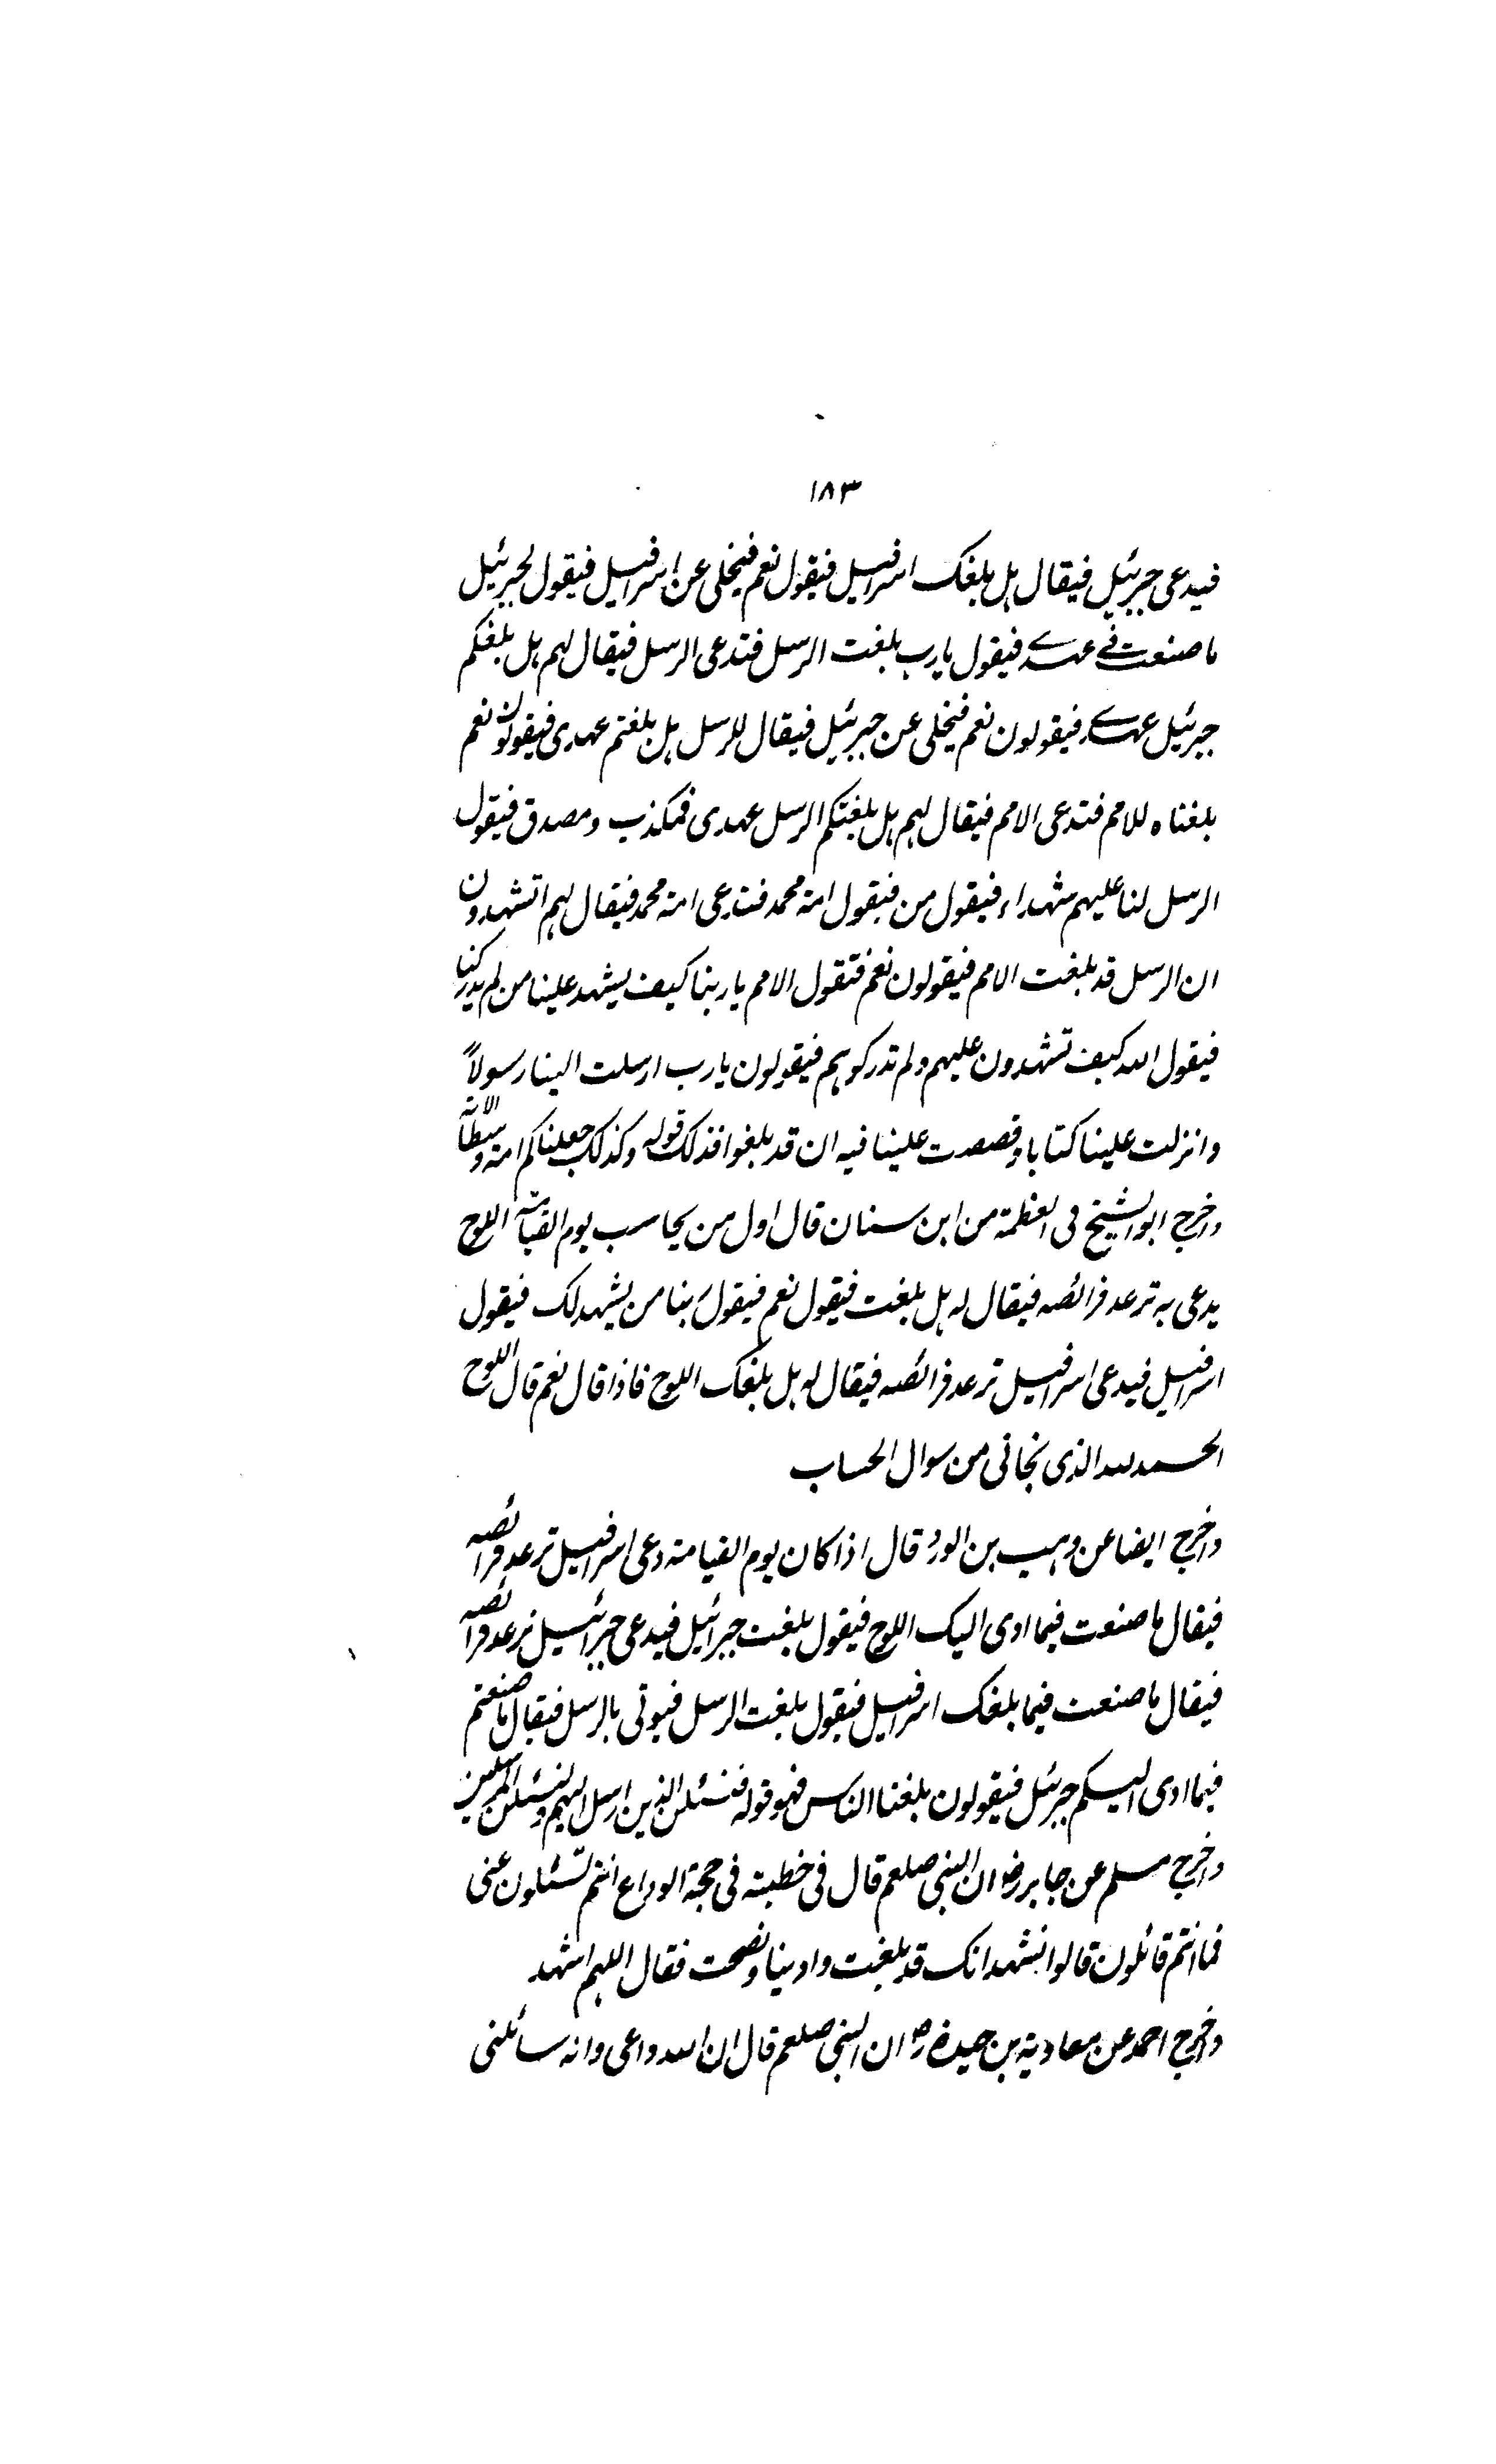 ١٨٣
فيدعى جبرئيل فيقال هل بلغك اسرافيل فيقول نعم فيخلى عن اسرافيل فيقول لجبرئيل
ما صنعت فے عہدے فيقول يارب بلغت الرسل فتدعى الرسل فيقال لهم هل بلغكم
جبرئيل عہدے فيقولون نعم فيخلى عن جبرئيل فيقال للرسل هل بلغتم عهدى فيقولون نعم
بلغناه للامم فتدعى الامم فيقال لهم هل بلغتكم الرسل عهدى فمكذب ومصدق فيقول
الرسل لنا عليهم شهداء فيقول من فيقول امة محمد فتدعى امة محمد فيقال لهم اتشهدون
ان الرسل قد بلغت الامم فيقولون نعم فتقول الامم يا ربنا كيف يشهد علينا من لم يدركنا
فيقول الله كيف تشهدون عليهم ولم تدركوهم فيقولون يارب ارسلت الينا رسولاً
وانزلت علينا كتابا وقصصت علينا فيه ان قد بلغوا فذلك قوله وكذلك جعلناكم امة وسطا الآية
واخرج ابو الشيخ فى العظمة من ابن سنان قال اول من يحاسب يوم القيامة اللوح
يدعى به ترعد فرائصه فيقال له هل بلغت فيقول نعم فيقول ربنا من يشهد لك فيقول
اسرافيل فيدعى اسرافيل ترعد فرائصه فيقال له هل بلغك اللوح فاذا قال نعم قال اللوح
الحمد لله الذى نجانى من سوال الحساب
واخرج ايضا عن وهيب بن الورد قال اذا كان يوم القيامة دعى اسرافيل ترعد فرائصه
فيقال ما صنعت فيما ادى اليك اللوح فيقول بلغت جبرائيل فيدعى جبرائيل ترعد فرائصه
فيقال ما صنعت فيما بلغك اسرافيل فيقول بلغت الرسل فيوتى بالرسل فيقال ما صنعتم
فيما ادى اليكم جبرئيل فيقولون بلغنا الناس فهو قوله فنسئلن الذين ارسل اليهم ولنسئلن المرسلين
واخرج مسلم عن جابر رض ان النبى صلعم قال فى خطبته فى حجة الوداع انتم تسئلون عنى
فما انتم قائلون قالوا نشهد انك قد بلغت واديت ونصحت فقال اللهم اشهد
واخرج احمد عن معاوية بن حيدة رض ان النبى صلعم قال ان الله داعى وانه سائلنى